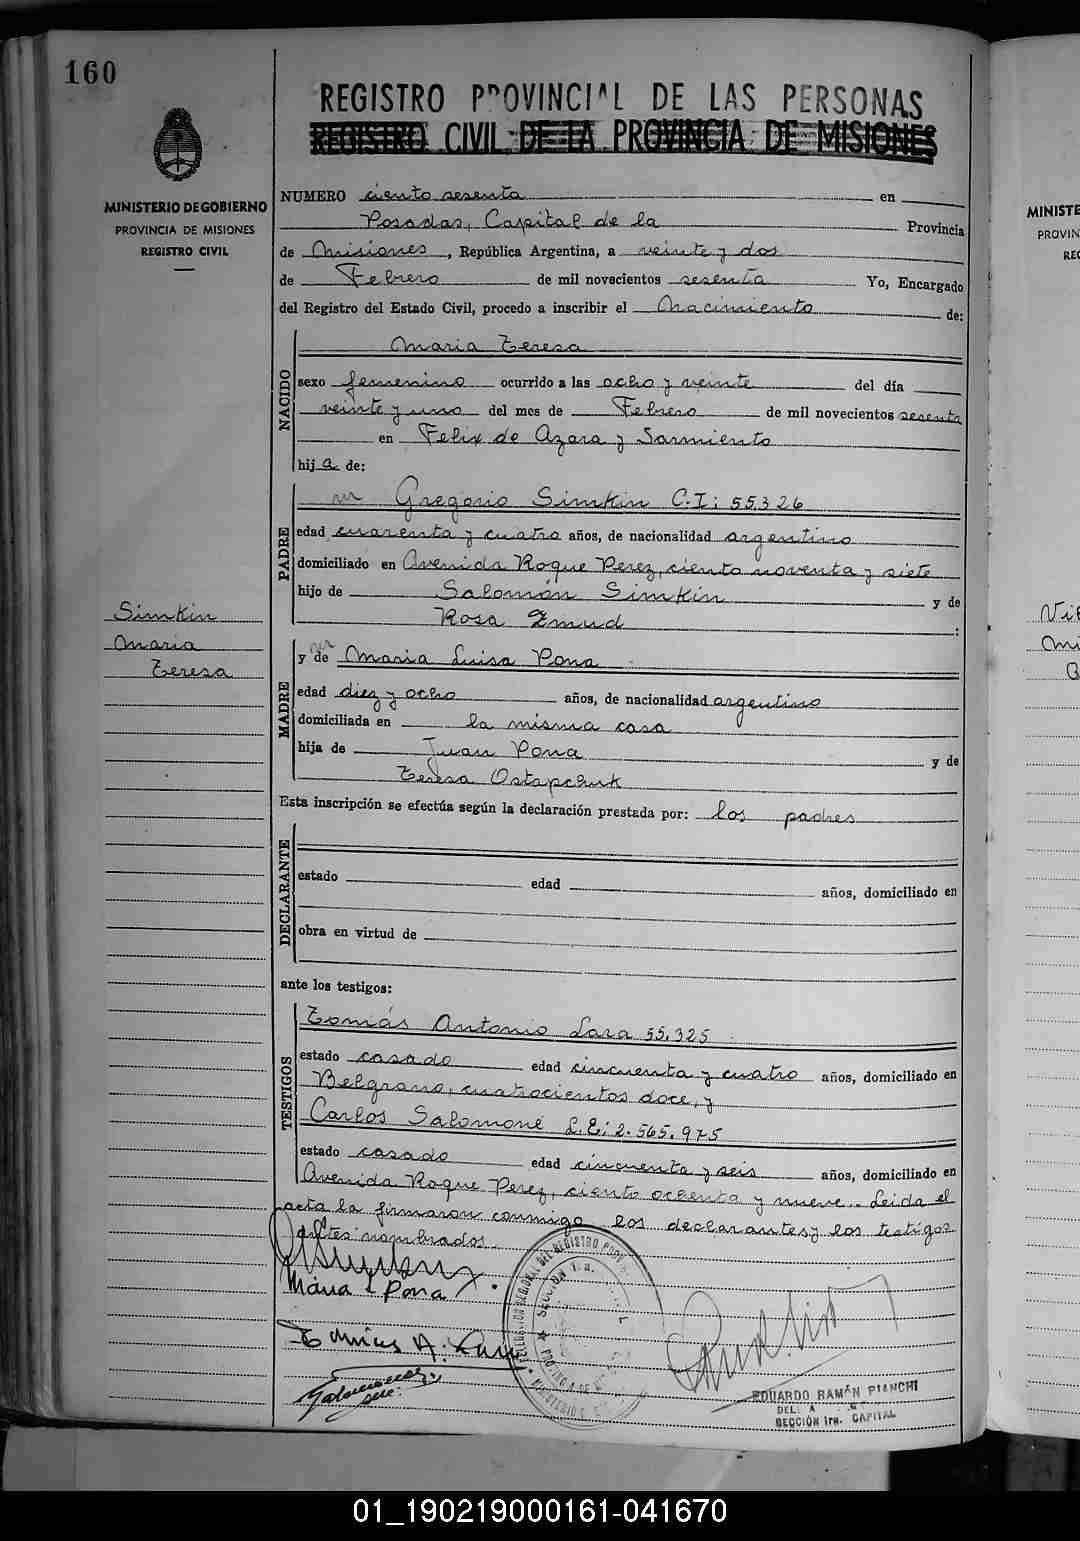 160
REGISTRO PROVINCIAL DE LAS PERSONAS
REGISTRO CIVIL DE LA PROVINCIA DE MISIONES
MINISTERIO DE GOBIERNO
PROVINCIA DE MISIONES
REGISTRO CIVIL
NUMERO ciento sesenta en
Posadas, Capital de la Provincia
de Misiones, República Argentina, a veinte y dos
de Febrero de mil novecientos sesenta Yo, Encargado
del Registro del Estado Civil, procedo a inscribir el Nacimiento de:
NACIDO
Maria Teresa
sexo femenino ocurrido a las ocho y veinte del día
veinte y uno del mes de Febrero de mil novecientos sesenta
en Felix de Azara y Sarmiento
hija de:
PADRE
Gregorio Simkin C.I: 55.326
edad cuarenta y cuatro años, de nacionalidad argentino
domiciliado en Avenida Roque Perez, ciento noventa y siete
hijo de Salomón Simkin y de
Rosa Zmud :
Simkin
Maria
Teresa
MADRE
y de Maria Luisa Pona
edad diez y ocho años, de nacionalidad argentino
domiciliada en la misma casa
hija de Juan Pona y de
Teresa Ostapchuk
Esta inscripción se efectúa según la declaración prestada por: los padres
DECLARANTE
estado edad años, domiciliado en
obra en virtud de
ante los testigos:
TESTIGOS
Tomás Antonio Lara 55.325
estado casado edad cincuenta y cuatro años, domiciliado en
Belgrano, cuatrocientos doce, y
Carlos Salomone L.E: 2.565.975
estado casado edad cincuenta y seis años, domiciliado en
Avenida Roque Perez, ciento ochenta y nueve. Leida el
acta la firmaron conmigo los declarantes y los testigos
antes nombrados.
Maria L Pona
Tomas A. Lara
EDUARDO RAMÓN PIANCHI
SECCIÓN 1ra. CAPITAL
MINISTE
PROVIN
REG
01_190219000161-041670